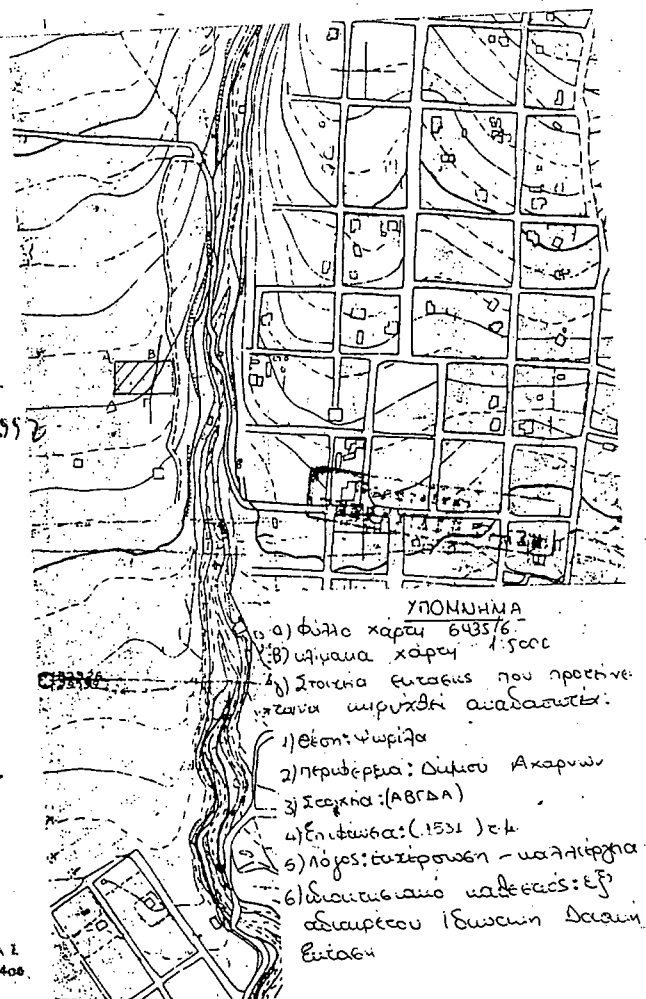 Α Β
Δ Γ
ΥΠΟΜΝΗΜΑ
α) Φύλλο χάρτη 6435/6
β) κλίμακα χάρτη 1:5000
γ) Στοιχεία εκτάσεως που προτείνε
ται να κηρυχθεί αναδασωτέα:
1) Θέση: Ψωρίλα
2) Περιφέρεια: Δήμου Αχαρνών
3) Στοιχεία: (ΑΒΓΔΑ)
4) Επιφάνεια: (1531) τ.μ.
5) Λόγος: εκχέρσωση – καλλιέργεια
6) Ιδιοκτησιακό καθεστώς: εξ'
αδιαιρέτου Ιδιωτική Δασική
Έκταση